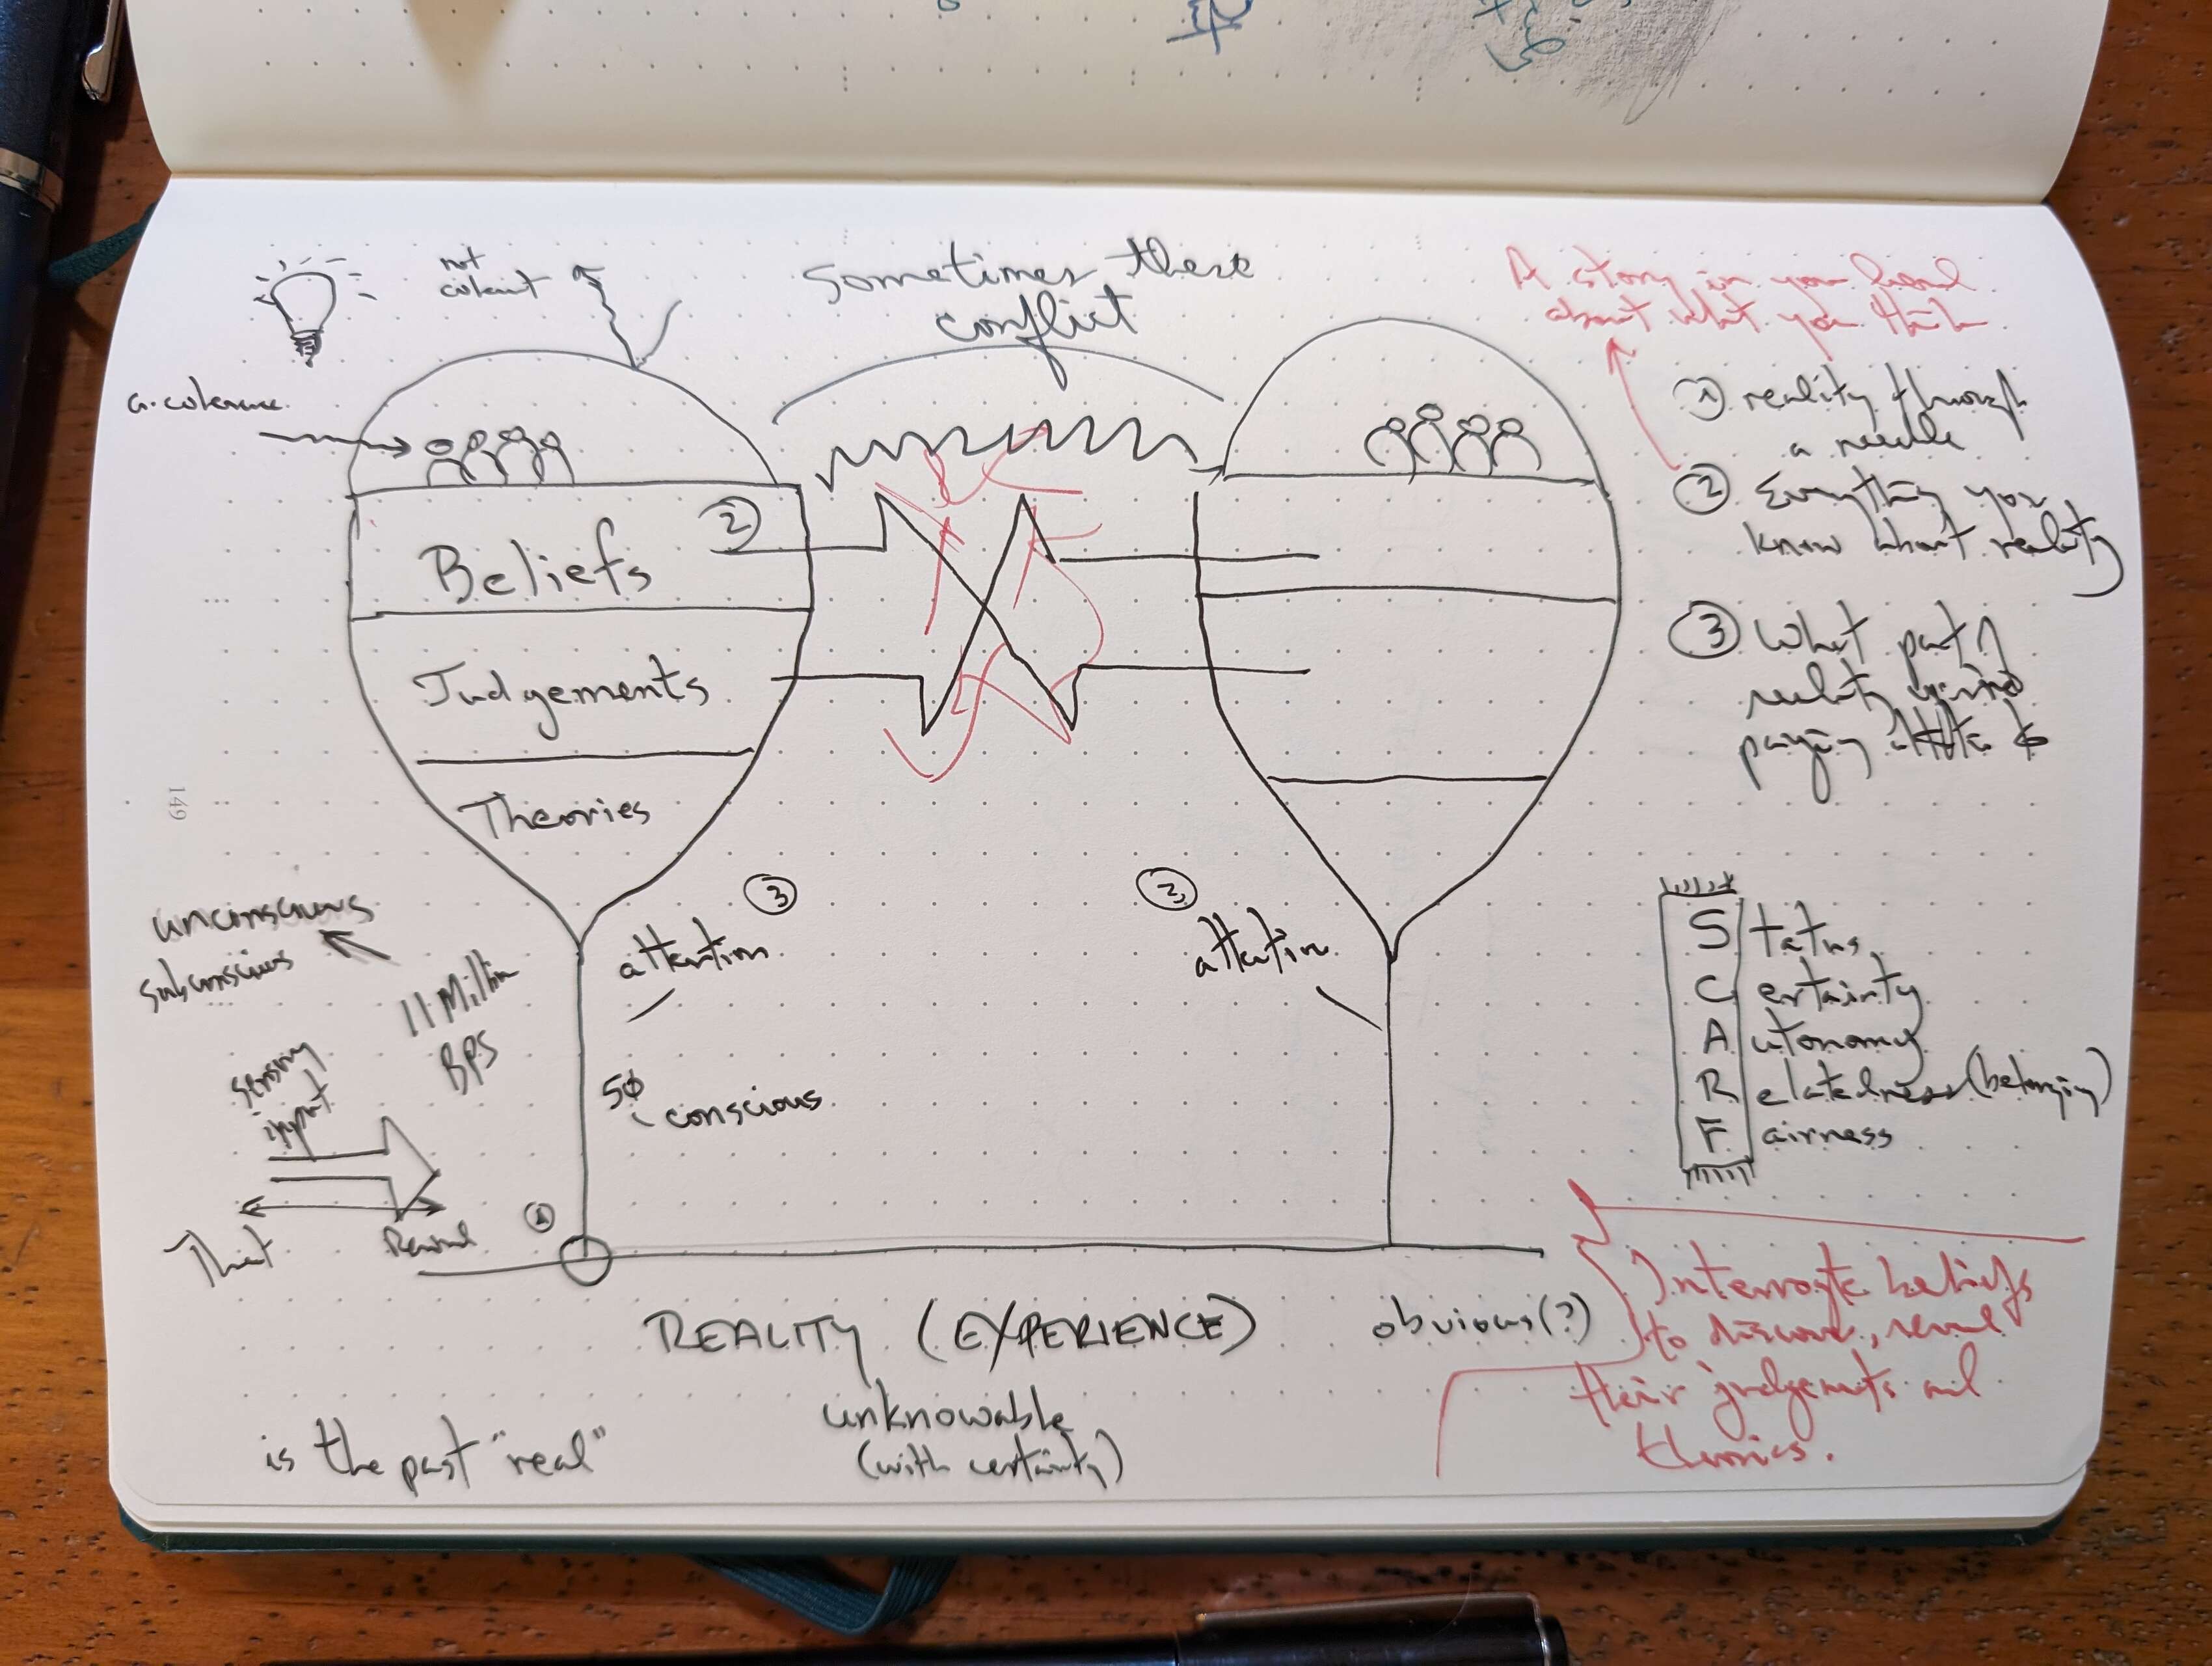 not
Sometimes these
conflict
A story in your head
about what you think
① reality through
a needle
② Everything you
know about reality
③ What part of
reality you're
paying attention to
Beliefs
②
Judgements
Theories
149
③
attention
③
attention
unconscious
subconscious
11 Million
BPS
sensory
input
50
conscious
Status
Certainty
Autonomy
Relatedness (belonging)
Fairness
Threat
Reward
①
REALITY (EXPERIENCE)
obvious (?)
unknowable
(with certainty)
is the past "real"
Interrogate beliefs
to discover, reveal
their judgements and
theories.